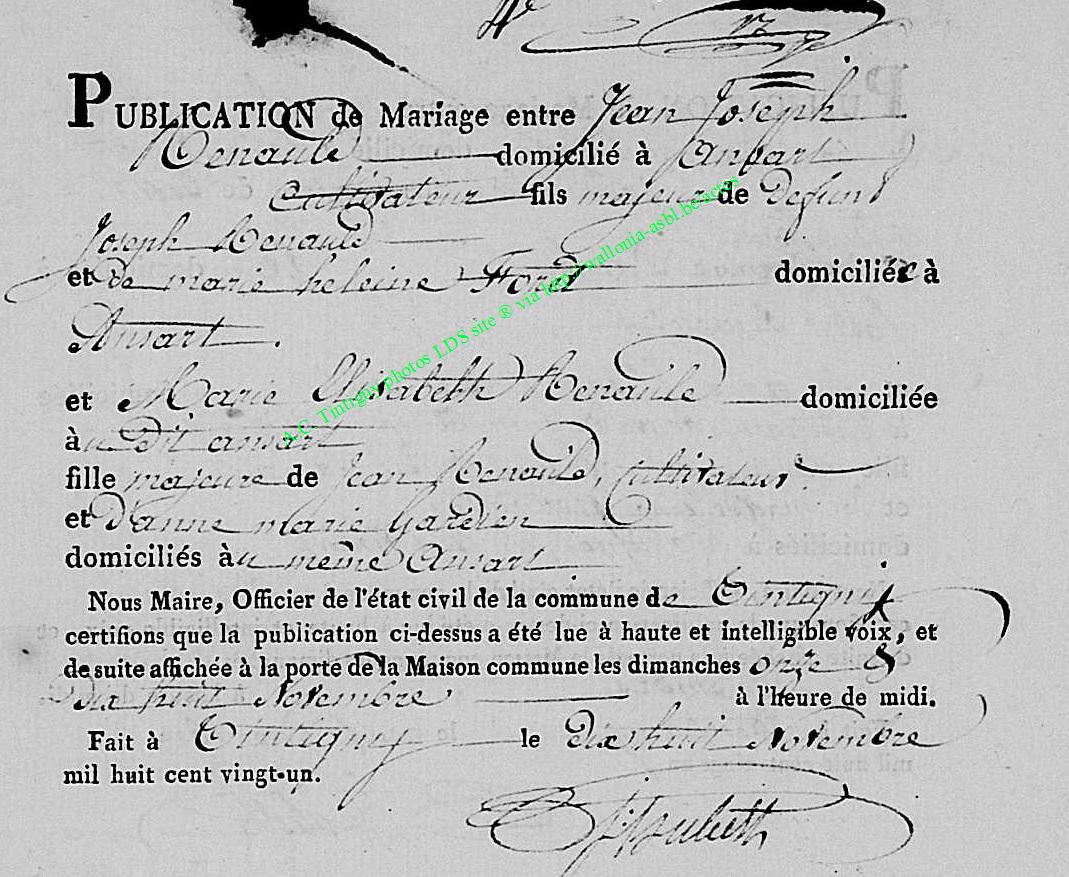 N° 12
PUBLICATION de Mariage entre Jean Joseph
Renauld domicilié à Ansart
Cultivateur fils majeur de Defunt
Joseph Renauld
et de marie heleine Foret domiciliée à
Ansart.
et Marie Elisabeth Renauld domiciliée
à u dit ansart
fille majeure de Jean Renauld, Cultivateur
et d'anne marie Gardien
domiciliés à u même Ansart
Nous Maire, Officier de l'état civil de la commune de Tintigny
certifions que la publication ci-dessus a été lue à haute et intelligible voix, et
de suite affichée à la porte de la Maison commune les dimanches onze &
dix huit Novembre à l'heure de midi.
Fait à Tintigny le dix huit Novembre
mil huit cent vingt-un.
A.C. Tintigny photos LDS site ® via http://wallonia-asbl.be/actes